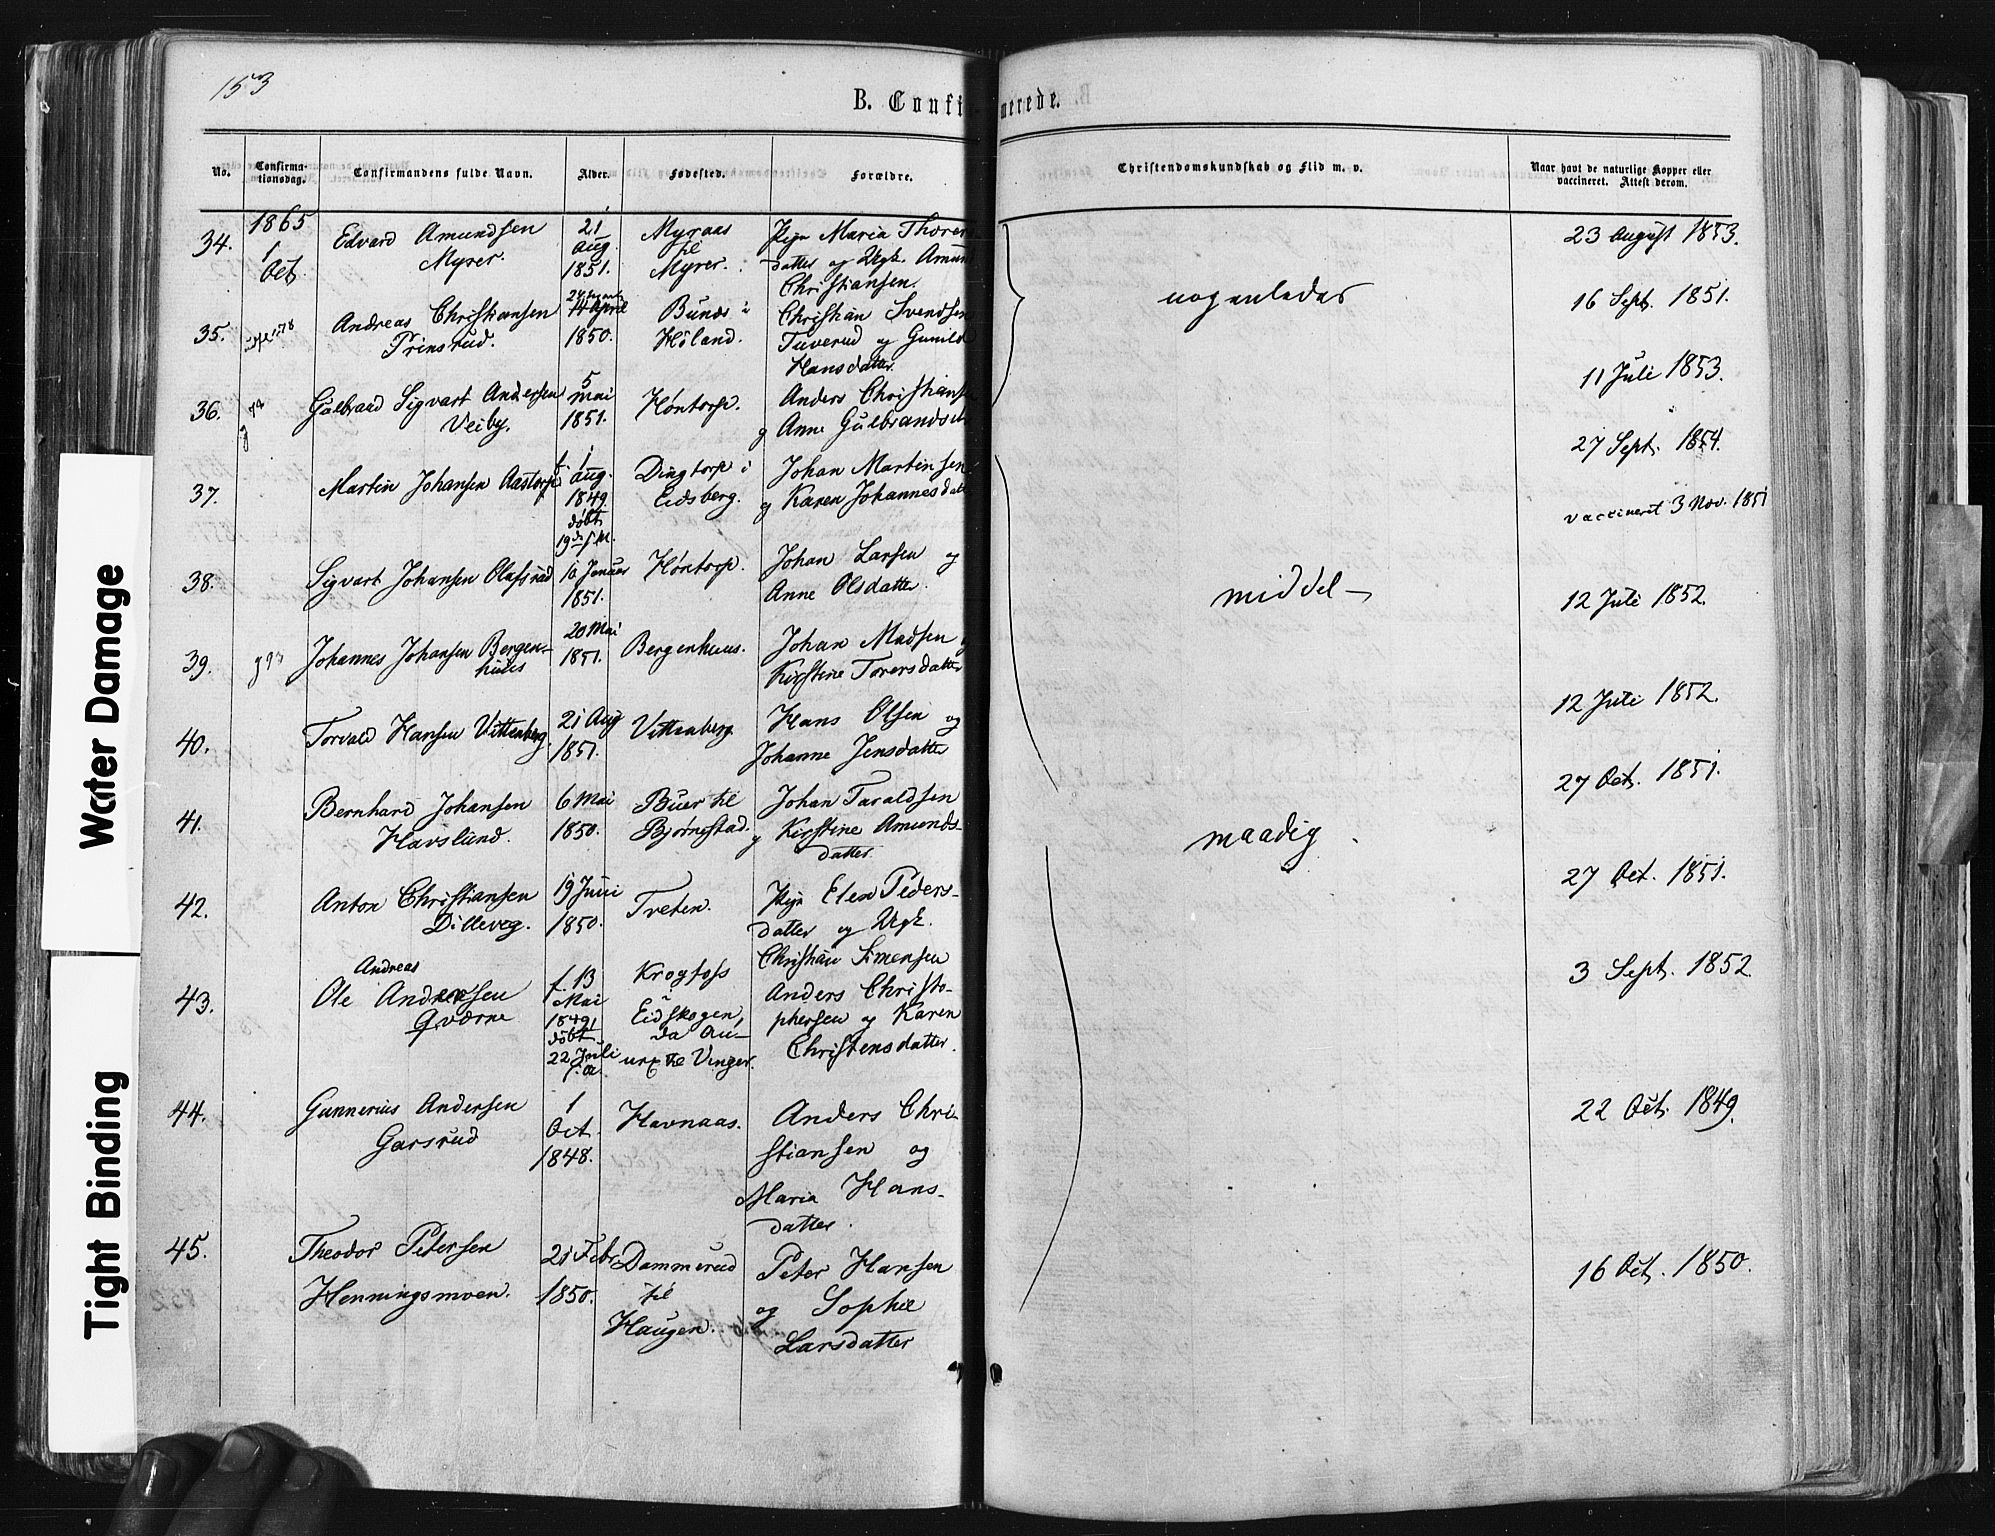 153
B. Confi merede.
No.
Confirma-
tionsdag.
Confirmandens fulde Navn.
Alder.
Fødested.
Forældre.
Christendomskundskab og Flid m. v.
Naar havt de naturlige Kopper eller
vaccineret. Attest derom.
34.
1865
1
Oct.
Edvard Amundsen
Myrer.
21
Aug.
1851.
Myraas
til
Myrer.
Pige Maria Thorers
datter og Ugk. Amun
Christiansen.
23 August 1853.
35.
Andreas Christiansen
Prinsrud.
April
1850.
Bunes i
Høland.
Christian Svendsen
Tuverud og Gunild
Hansdatter.
nogenledes
16 Sept. 1851.
36.
Gulbrand Sigvart Andersen
Veiby.
5
Mai
1851.
Høntorp.
Anders Christianse
g Anne Gulbrandsd
11 Juli 1853.
37.
Martin Johansen Aastorp
f. 1
Aug.
1849
døbt
19 d. s. M.
Dingtorp i
Eidsberg.
Johan Martinsen
g Karen Johannesdatt
27 Sept. 1854.
vaccineret 3 Nov. 1851
38.
Sigvart Johansen Olafsrud
10 Januar
1851.
Høntorp.
Johan Larsen og
Anne Olsdatter
middel
12 Juli 1852.
39.
g 93
Johannes Johansen Bergen-
huus
20 Mai
1851.
Bergenhuus.
Johan Madsen
Kirstine Torersdatter
12 Juli 1852.
40.
Torvald Hansen Vittenberg
21 Aug
1851.
Vittenberg
Hans Olsen og
Johanne Jensdatter
27 Oct. 1851.
41.
Bernhard Johansen
Havslund.
6 Mai
1850.
Buer til
Bjørnstad.
Johan Taraldsen
g Kirstine Amunds-
datter
maadig.
27 Oct. 1851.
42.
Anton Christiansen
Dilleveg.
19 Juni
1850.
Tveten.
Pige Elen Peders-
datter og Ugk.
Christian Simensen
3 Sept. 1852
43.
Andreas
Ole Andersen
Qværne
f. 13
Mai
1849,
døbt
22 Juli
s. a.
Krogfoss
i
Eidskogen,
da An-
nex til Vinger.
Anders Christo-
phersen og Karen
Christensdatter.
44.
Gunnerius Andersen
Garsrud
1
Oct.
1848.
Havnaas.
Anders Chri-
stiansen og
Maria Hans-
datter.
22 Oct. 1849.
45.
Theodor Petersen
Henningsmoen.
21 Febr
1850.
Dammerud
til
Haugen.
Peter Hansen
og Sophie
Larsdatter
16 Oct. 1850.
Water Damage
Tight Binding